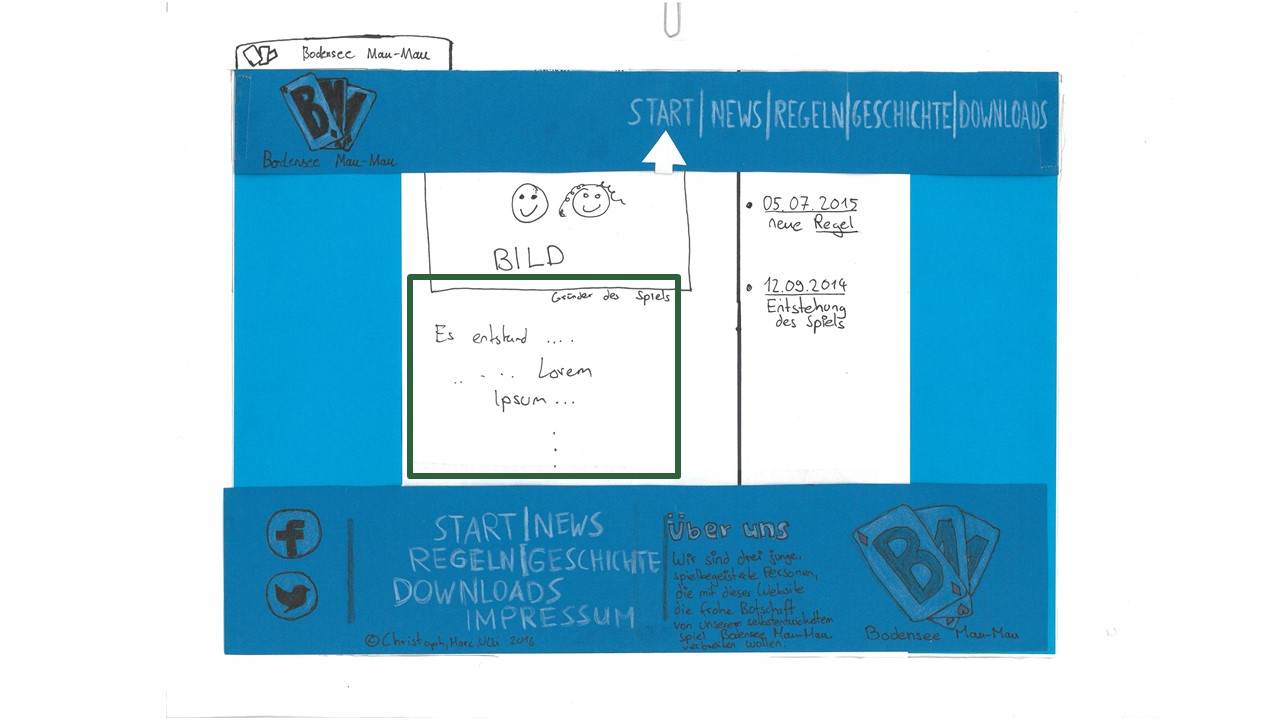 Bodensee Mau-Mau
BM
Bodensee Mau-Mau
START | NEWS | REGELN | GESCHICHTE | DOWNLOADS
BILD
Gründer des Spiels
Es entstand ....
.. . .. Lorem
Ipsum ...
05.07.2015
neue Regel
12.09.2014
Entstehung
des Spiels
START | NEWS
REGELN | GESCHICHTE
DOWNLOADS
IMPRESSUM
© Christoph, Marc, 2016
Über uns
Wir sind drei junge,
spielbegeisterte Personen,
die mit dieser Website
die frohe Botschaft
von unserem selbsterdachtem
Spiel Bodensee Mau-Mau
verbreiten wollen.
BM
Bodensee Mau-Mau